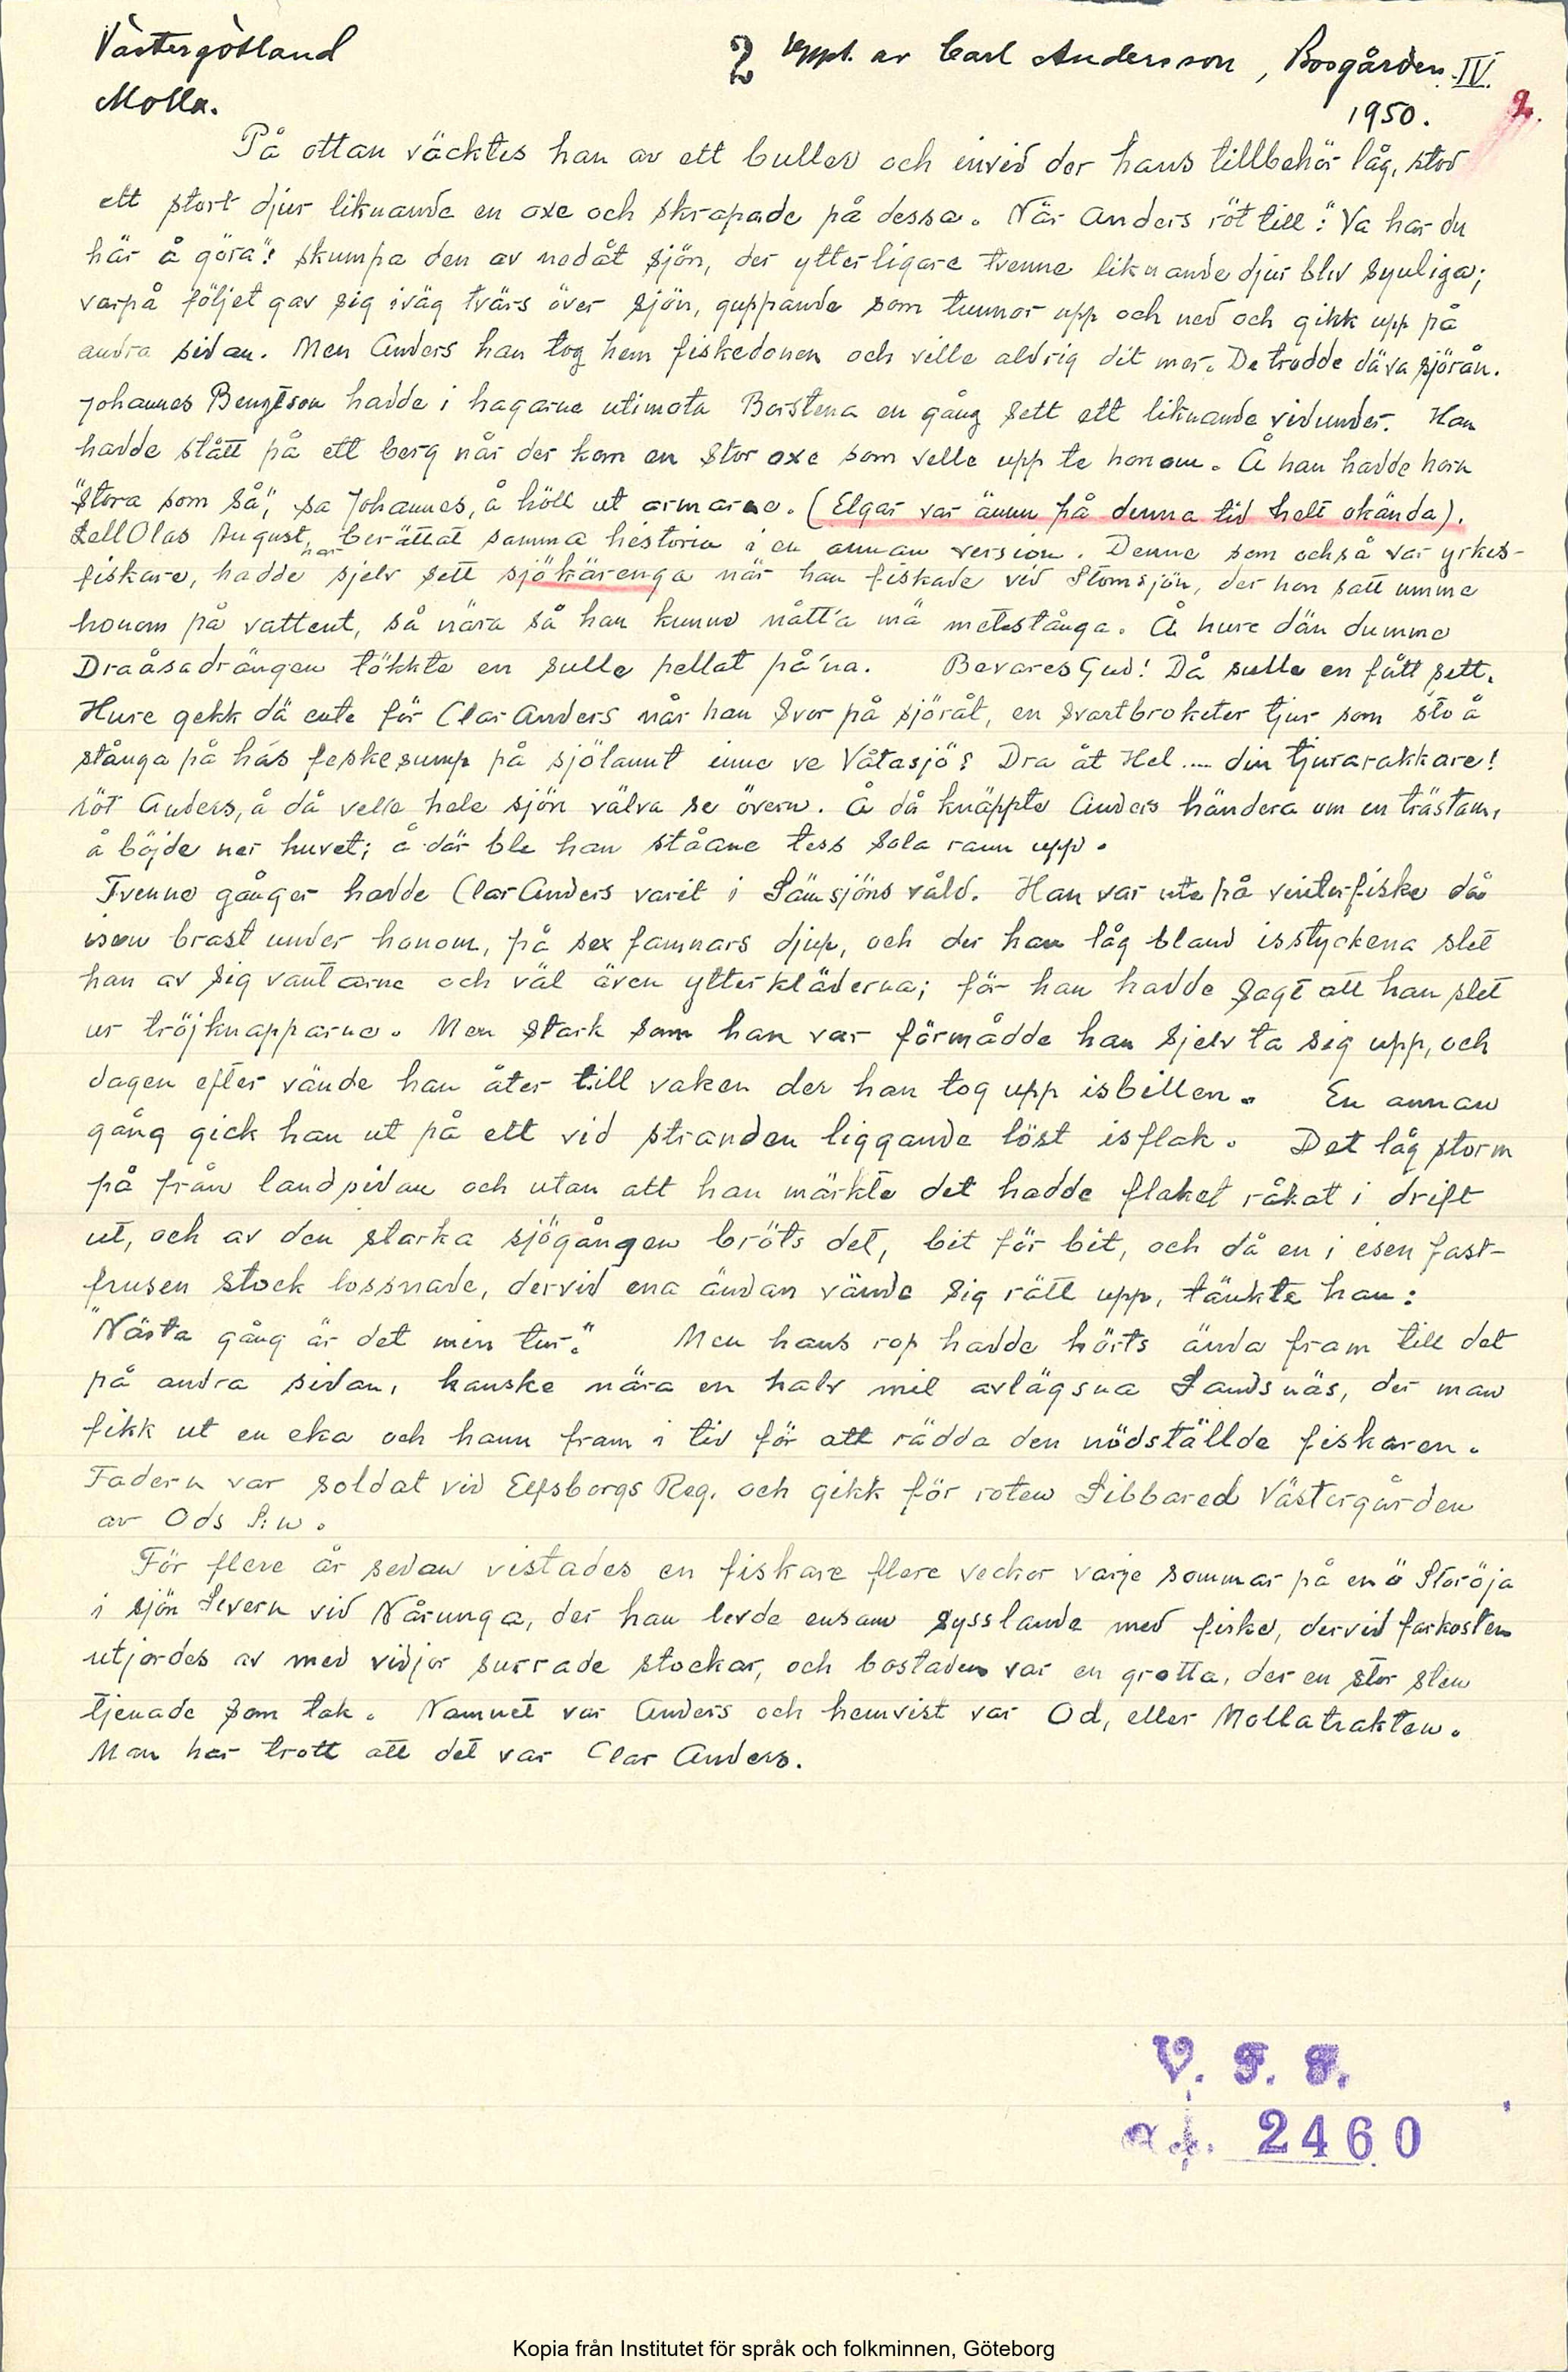 Västergötland
Molla.
2 Uppt. av Carl Andersson, Bosgården. IV.
1950. 2.
På ottan väcktes han av ett buller och invid der hans tillbehör låg, stod
ett stort djur liknande en oxe och skrapade på dessa. När Anders röt till: "Va har du
här å göra"! skumpa den av nedåt sjön, der ytterligare tvenne liknande djur blev synliga;
varpå följet gav sig iväg tvärs över sjön, guppande som tunnor upp och ned och gikk upp på
andra sidan. Men Anders han tog hem fiskedonen och ville aldrig dit mer. De trodde dä va sjörån.
Johannes Bengtson hadde i hagarne utimota Borstena en gång sett ett liknande vidunder. Han
hadde stått på ett berg når der kom en stor oxe som velle upp te honom. Å han hadde horn
"stora som så," sa Johannes, å höll ut armarne. (Elgar var ännu på denna tid helt okända).
LellOlas August, har berättat samma historia i en annan version. Denne som också var yrkes-
fiskare, hadde sjelv sett sjökärenga när han fiskade vid Stomsjön, der hon satt umme
honom på vattent, så nära så han kunne nått'a mä metestånga. Å hure dän dumme
Draåsadrängen tökkte en sulle pellat på'na. Bevares Gud! Då sulle en fått sett.
Hure gekk dä ente för Clar Anders når han svor på sjöråt, en svartbroketer tjur som sto å
stånga på hás feskesump på sjölannt inne ve Våtasjö? Dra åt Hel.... din tjurarakkare!
röt Anders, å då velle hele sjön välva se övern. Å då knäppte Anders händera om en trästam,
å böjde ner huvet; å där ble han ståane tess sola rann upp.
Tvenne gånger hadde Clar Anders varit i Sämsjöns våld. Han var ute på vinterfiske då
isen brast under honom, på sex famnars djup, och der han låg bland isstyckena slet
han av sig vantarne och väl även ytterkläderna; för han hadde sagt att han slet
ur tröjknapparne. Men stark som han var förmådde han sjelv ta sig upp, och
dagen efter vände han åter till vaken der han tog upp isbillen. En annan
gång gick han ut på ett vid stranden liggande löst isflak. Det låg storm
på från landsidan och utan att han märkte det hadde flaket råkat i drift
ut, och av den starka sjögången bröts det, bit för bit, och då en i isen fast-
frusen stock lossnade, dervid ena ändan vände sig rätt upp, tänkte han:
"Nästa gång är det min tur." Men hans rop hadde hörts ända fram till det
på andra sidan, kanske nära en halv mil avlägsna Sandsnäs, der man
fikk ut en eka och hann fram i tid för att rädda den nödställde fiskaren.
Fadern var soldat vid Elfsborgs Reg. och gikk för roten Sibbared Västergården
av Ods S:n.
För flere år sedan vistades en fiskare flere veckor varje sommar på en ö Storöja
i sjön Severn vid Nårunga, der han levde ensam sysslande med fiske, dervid farkosten
utjordes av med vidjor surrade stockar, och bostaden var en grotta, der en stor sten
tjenade som tak. Namnet var Anders och hemvist var Od, eller Mollatrakten.
Man har trott att det var Clar Anders.
V. F. F.
2460
Kopia från Institutet för språk och folkminnen, Göteborg